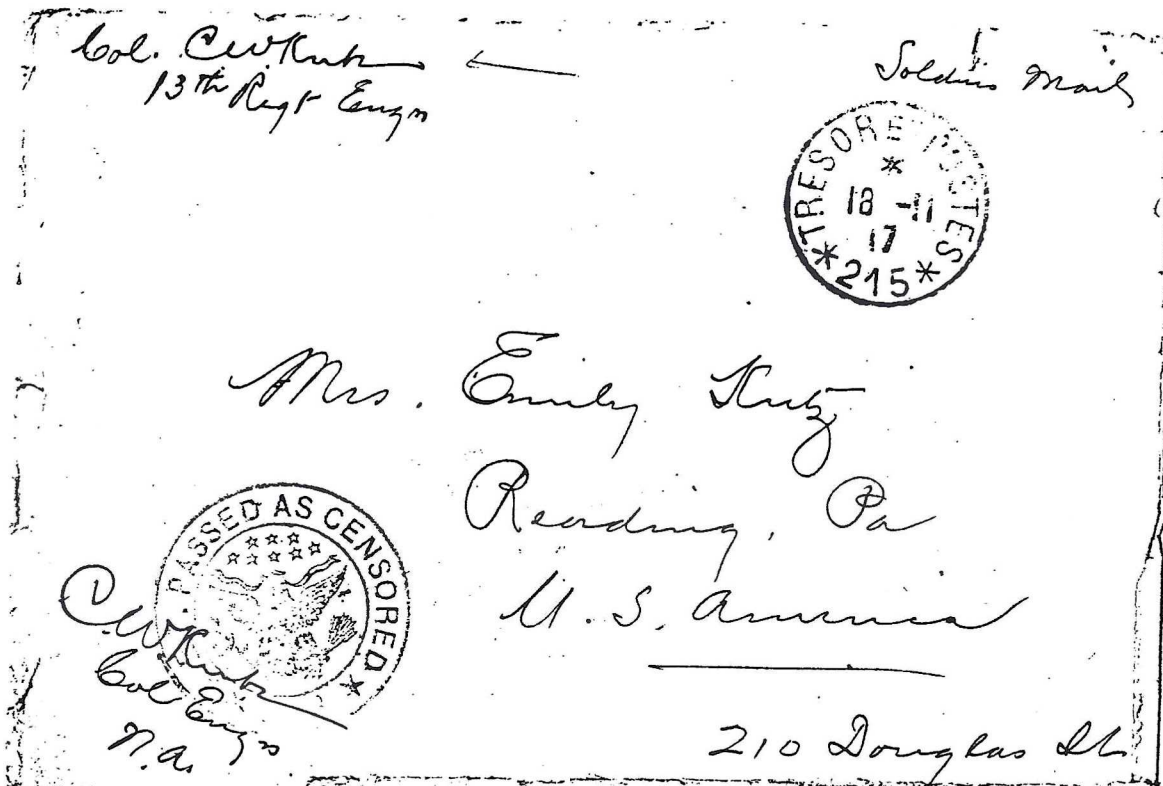 Col. CWKutz
13th Regt Engrs
Soldiers Mail
TRESOR E POSTES
*
18 -11
17
*215*
Mrs. Emily Kutz
Reading, Pa
U. S. America
210 Douglas St
PASSED AS CENSORED
CWKutz
Col Engrs
N.A.